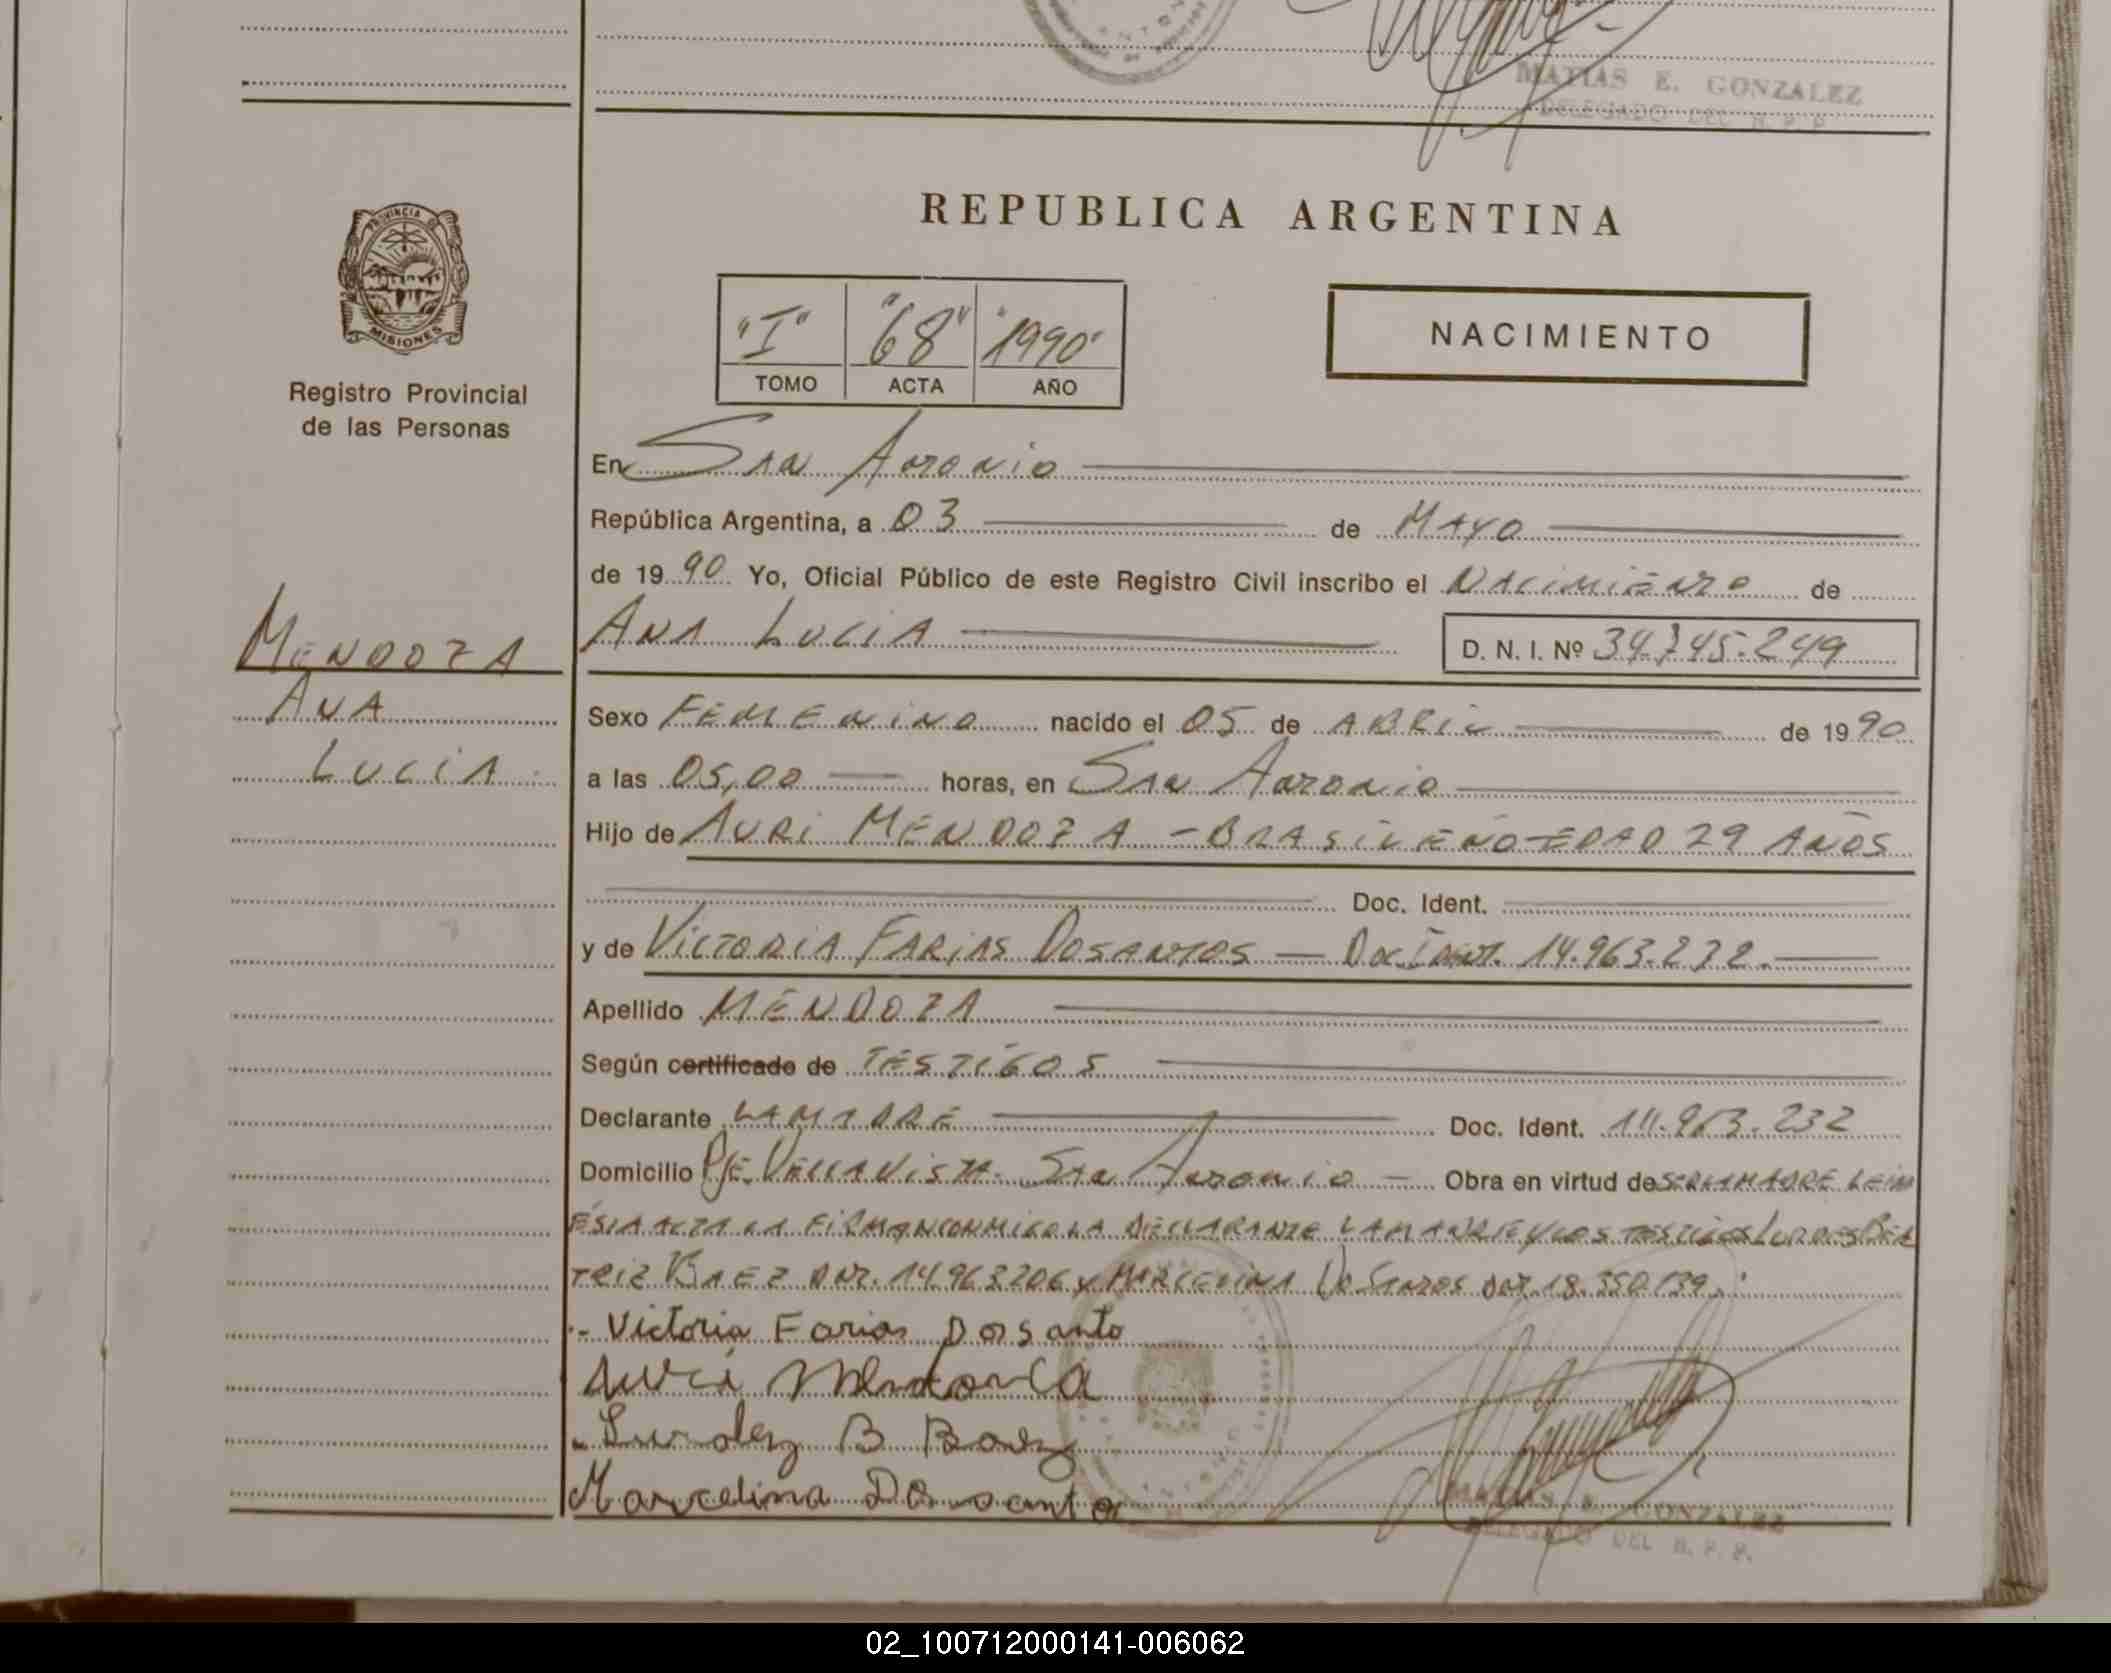 MATIAS E. GONZALEZ
DELEGADO DEL R. P. P.
PROVINCIA DE
MISIONES
Registro Provincial
de las Personas
REPUBLICA ARGENTINA
"I" "68" "1990"
TOMO ACTA AÑO
NACIMIENTO
En San Antonio
República Argentina, a 03 de MAYO
de 1990 Yo, Oficial Público de este Registro Civil inscribo el NACIMIENTO de
ANA LUCIA D. N. I. Nº 34.745.249
MENDOZA
ANA
LUCIA
Sexo FEMENINO nacido el 05 de ABRIL de 1990
a las 05,00 horas, en San Antonio
Hijo de AURI MENDOZA - BRASILEÑO - EDAD 29 AÑOS
Doc. Ident.
y de VICTORIA FARIAS DOSANTOS — Doc Ident. 14.963.232.
Apellido MENDOZA
Según certificado de TESTIGOS
Declarante LA MADRE Doc. Ident. 14.963.232
Domicilio Pje. VELLAVISTA - San Antonio — Obra en virtud de SER LA MADRE LEIDA
ESTA ACTA LA FIRMAN CONMIGO LA DECLARANTE LA MADRE Y LOS TESTIGOS LURDES BEA
TRIZ BAEZ DNI. 14.963.206 y MARCELINA DO SANTOS DNI. 18.350.139.
- Victoria Farias Dosanto
Auri Mendonca
- Lurdez B Baez
Marcelina Do santo
MATIAS E. GONZALEZ
DELEGADO DEL R. P. P.
02_100712000141-006062